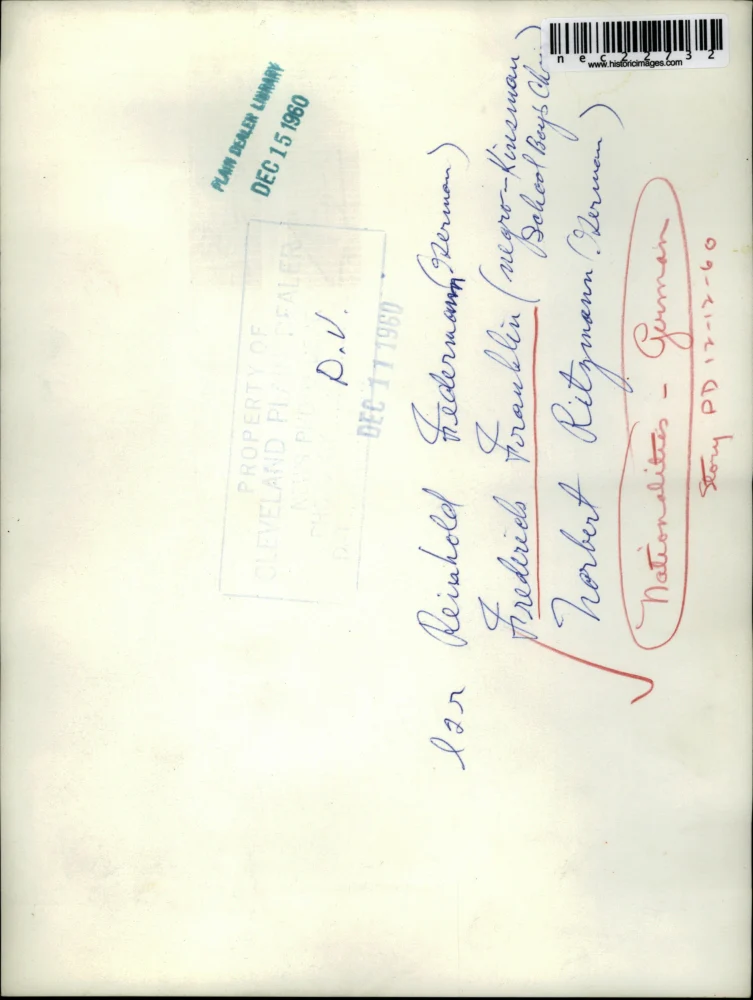 nec22732
www.historicimages.com
PLAIN DEALER LIBRARY
DEC 15 1960
PROPERTY OF
CLEVELAND PLAIN DEALER
P.D.
DEC 11 1960
l2r Reinhold Federmann (German)
Frederick Franklin (negro-Kinsman
School Boys Choir)
Norbert Ritzmann (German)
Nationalities - German
Story PD 12-12-60